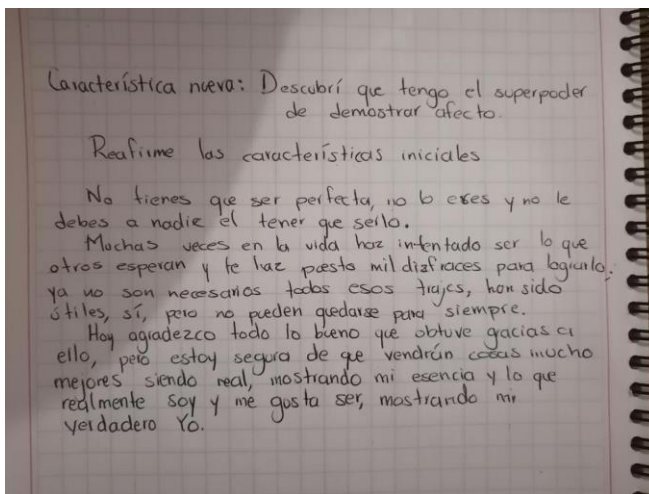 Característica nueva: Descubrí que tengo el superpoder
de demostrar afecto.
Reafirme las características iniciales
No tienes que ser perfecta, no lo eres y no le
debes a nadie el tener que serlo.
Muchas veces en la vida haz intentado ser lo que
otros esperan y te haz puesto mil disfraces para lograrlo.
ya no son necesarios todos esos trajes, han sido
útiles, sí, pero no pueden quedarse para siempre.
Hoy agradezco todo lo bueno que obtuve gracias a
ello, pero estoy segura de que vendrán cosas mucho
mejores siendo real, mostrando mi esencia y lo que
realmente soy y me gusta ser, mostrando mi
verdadero Yo.